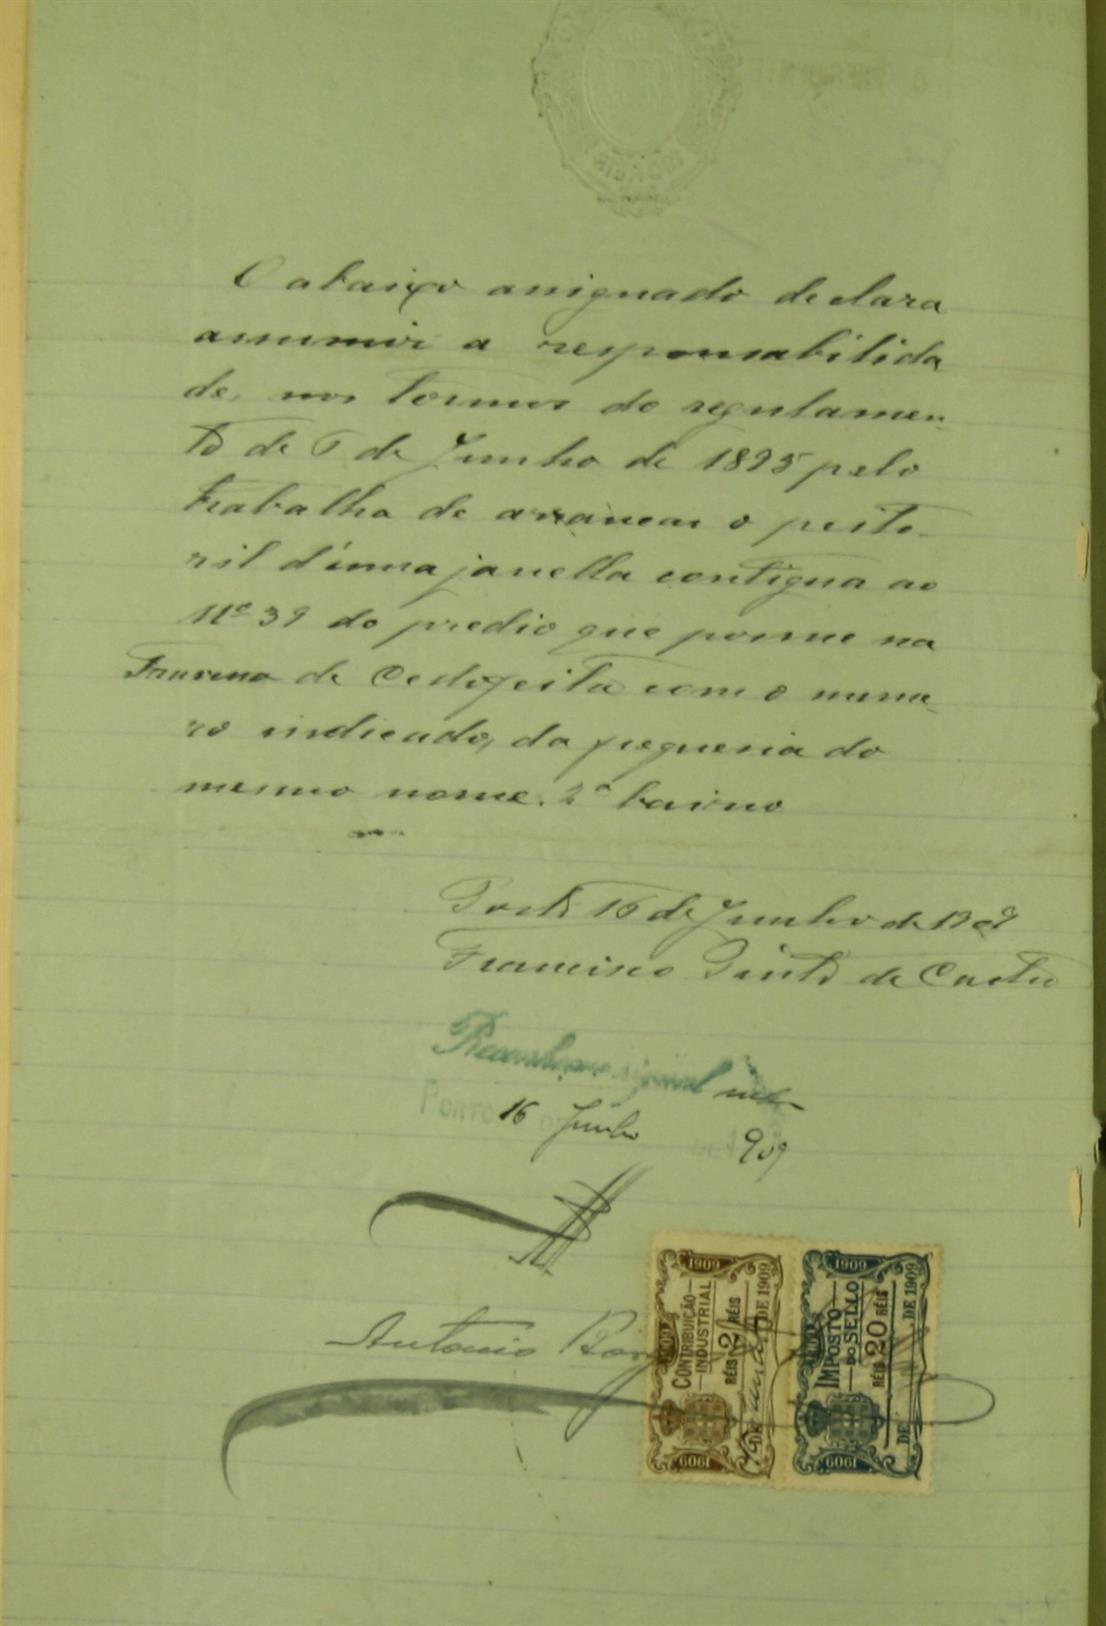 O abaixo assignado declara
assumir a responsabilida
de, nos termos do regulamen-
to de 6 de Junho de 1895 pelo
trabalho de arrancar o peito-
ril d'uma janella contigua ao
Nº 39 do predio que possue na
Travessa de Cedofeita com o nume-
ro indicado, da freguesia do
mesmo nome. 2º bairro
Porto 16 de Junho de 1909
Francisco Pinto de Castro
Reconheço o signal
PORTO 16 Junho 909
Antonio
1909
CONTRIBUIÇÃO
INDUSTRIAL
RÉIS 2 RÉIS
DE DE 1909
1909
1909
IMPOSTO
DO SELLO
RÉIS 20 RÉIS
DE DE 1909
1909